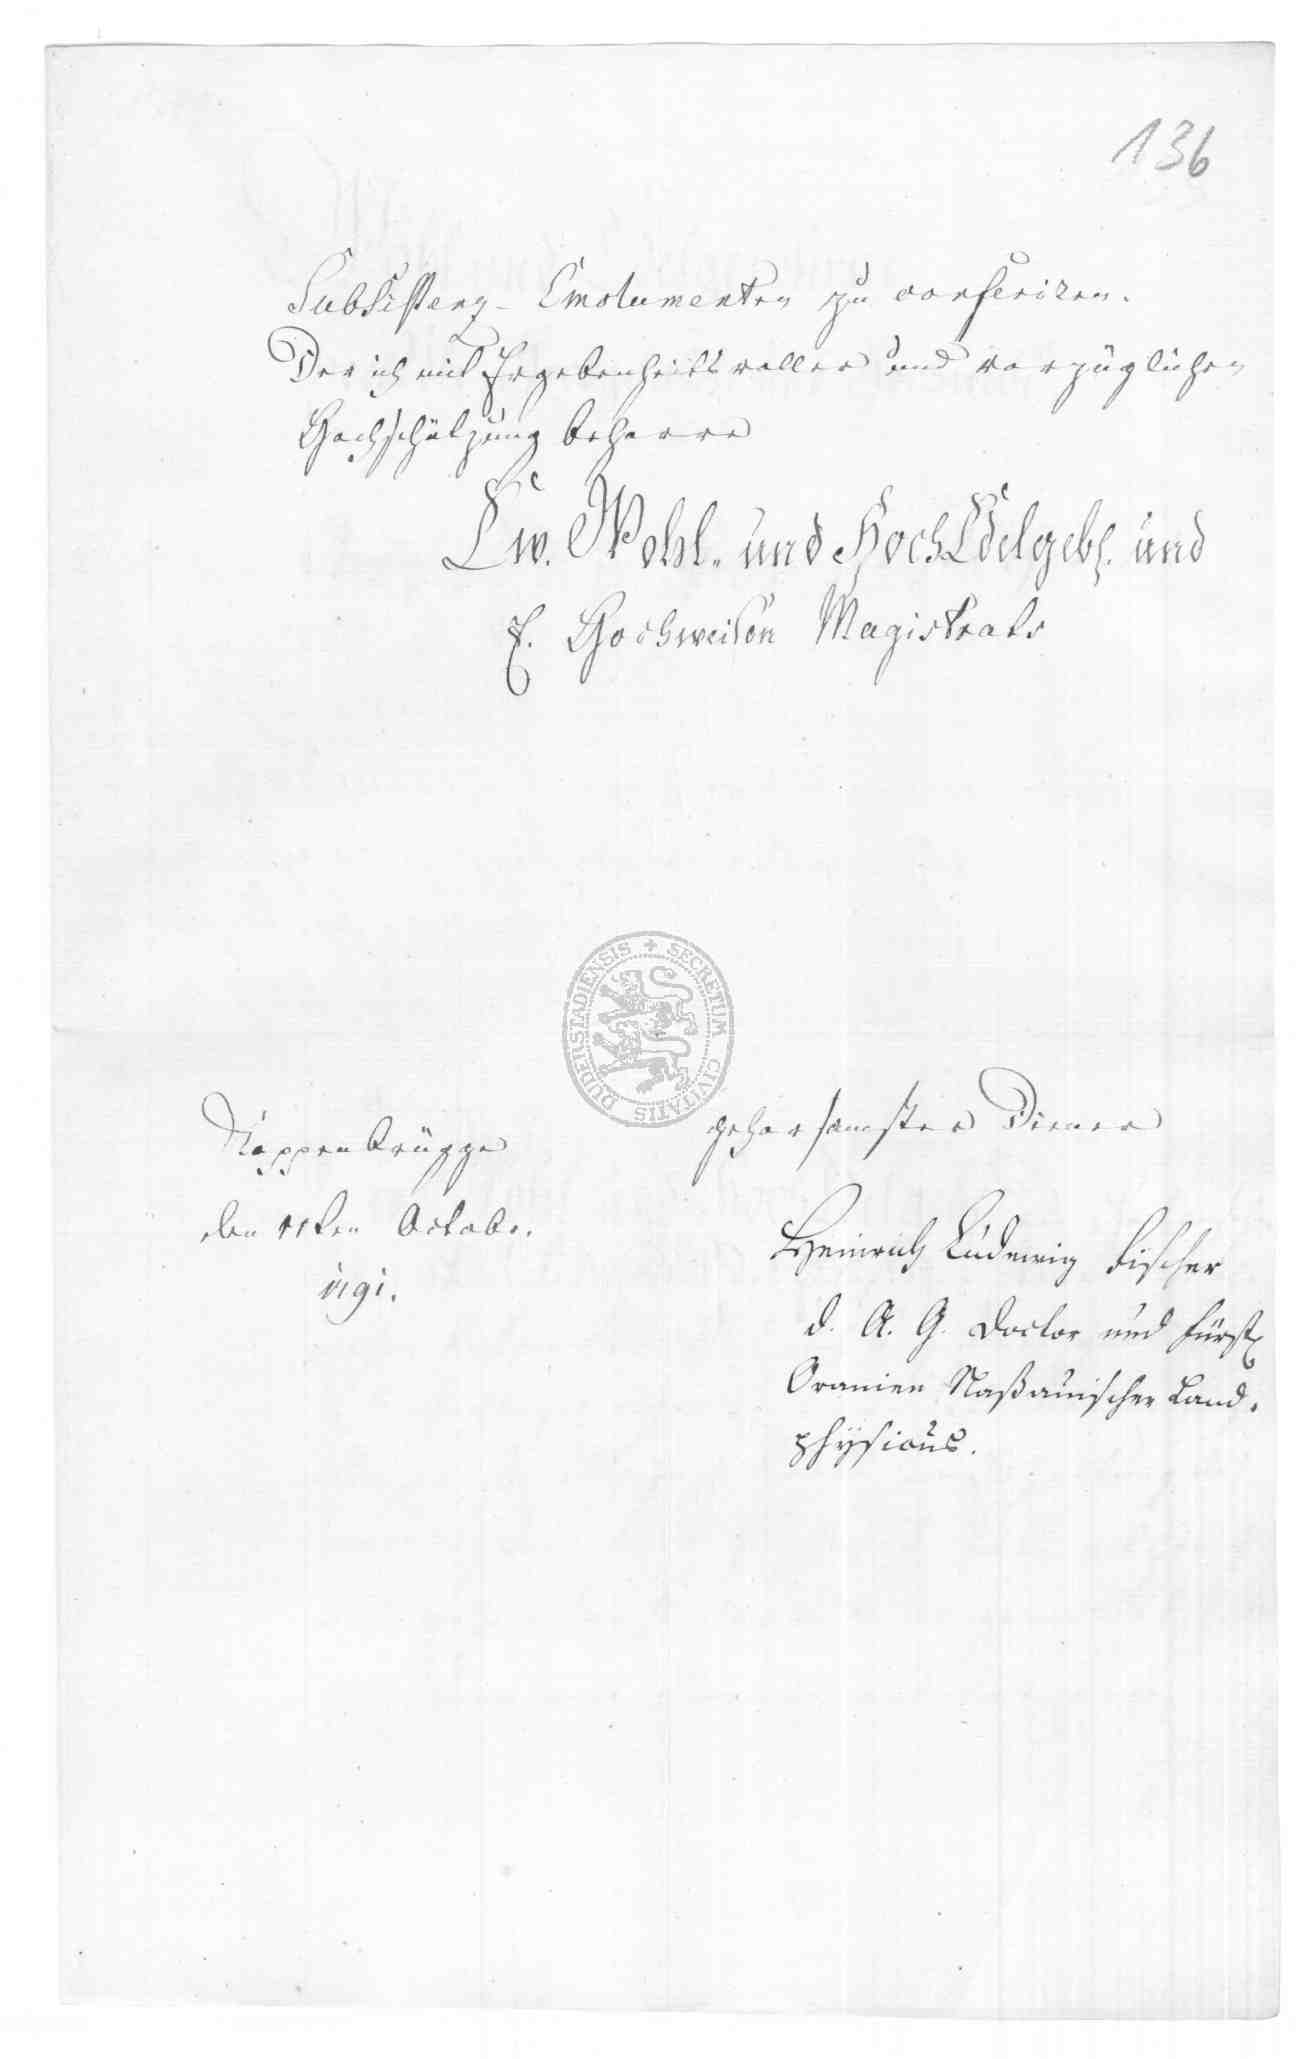 136
Subsistenz- Emolumenten zu conferiren.
Der ich mit Ergebenheits voller und vorzüglicher
Hochschätzung beharre
Ew. Wohl- und HochEdelgeb. und
E. Hochweisen Magistrats
SECRETUM CIVITATIS DUDERSTADIENSIS
gehorsamster Diener
Koppenbrügge
den 11ten Octobr.
1791.
Heinrich Ludewig Fischer
d. A. G. Doctor und Fürstl
Oranien Naßauischer Land-
physicus.